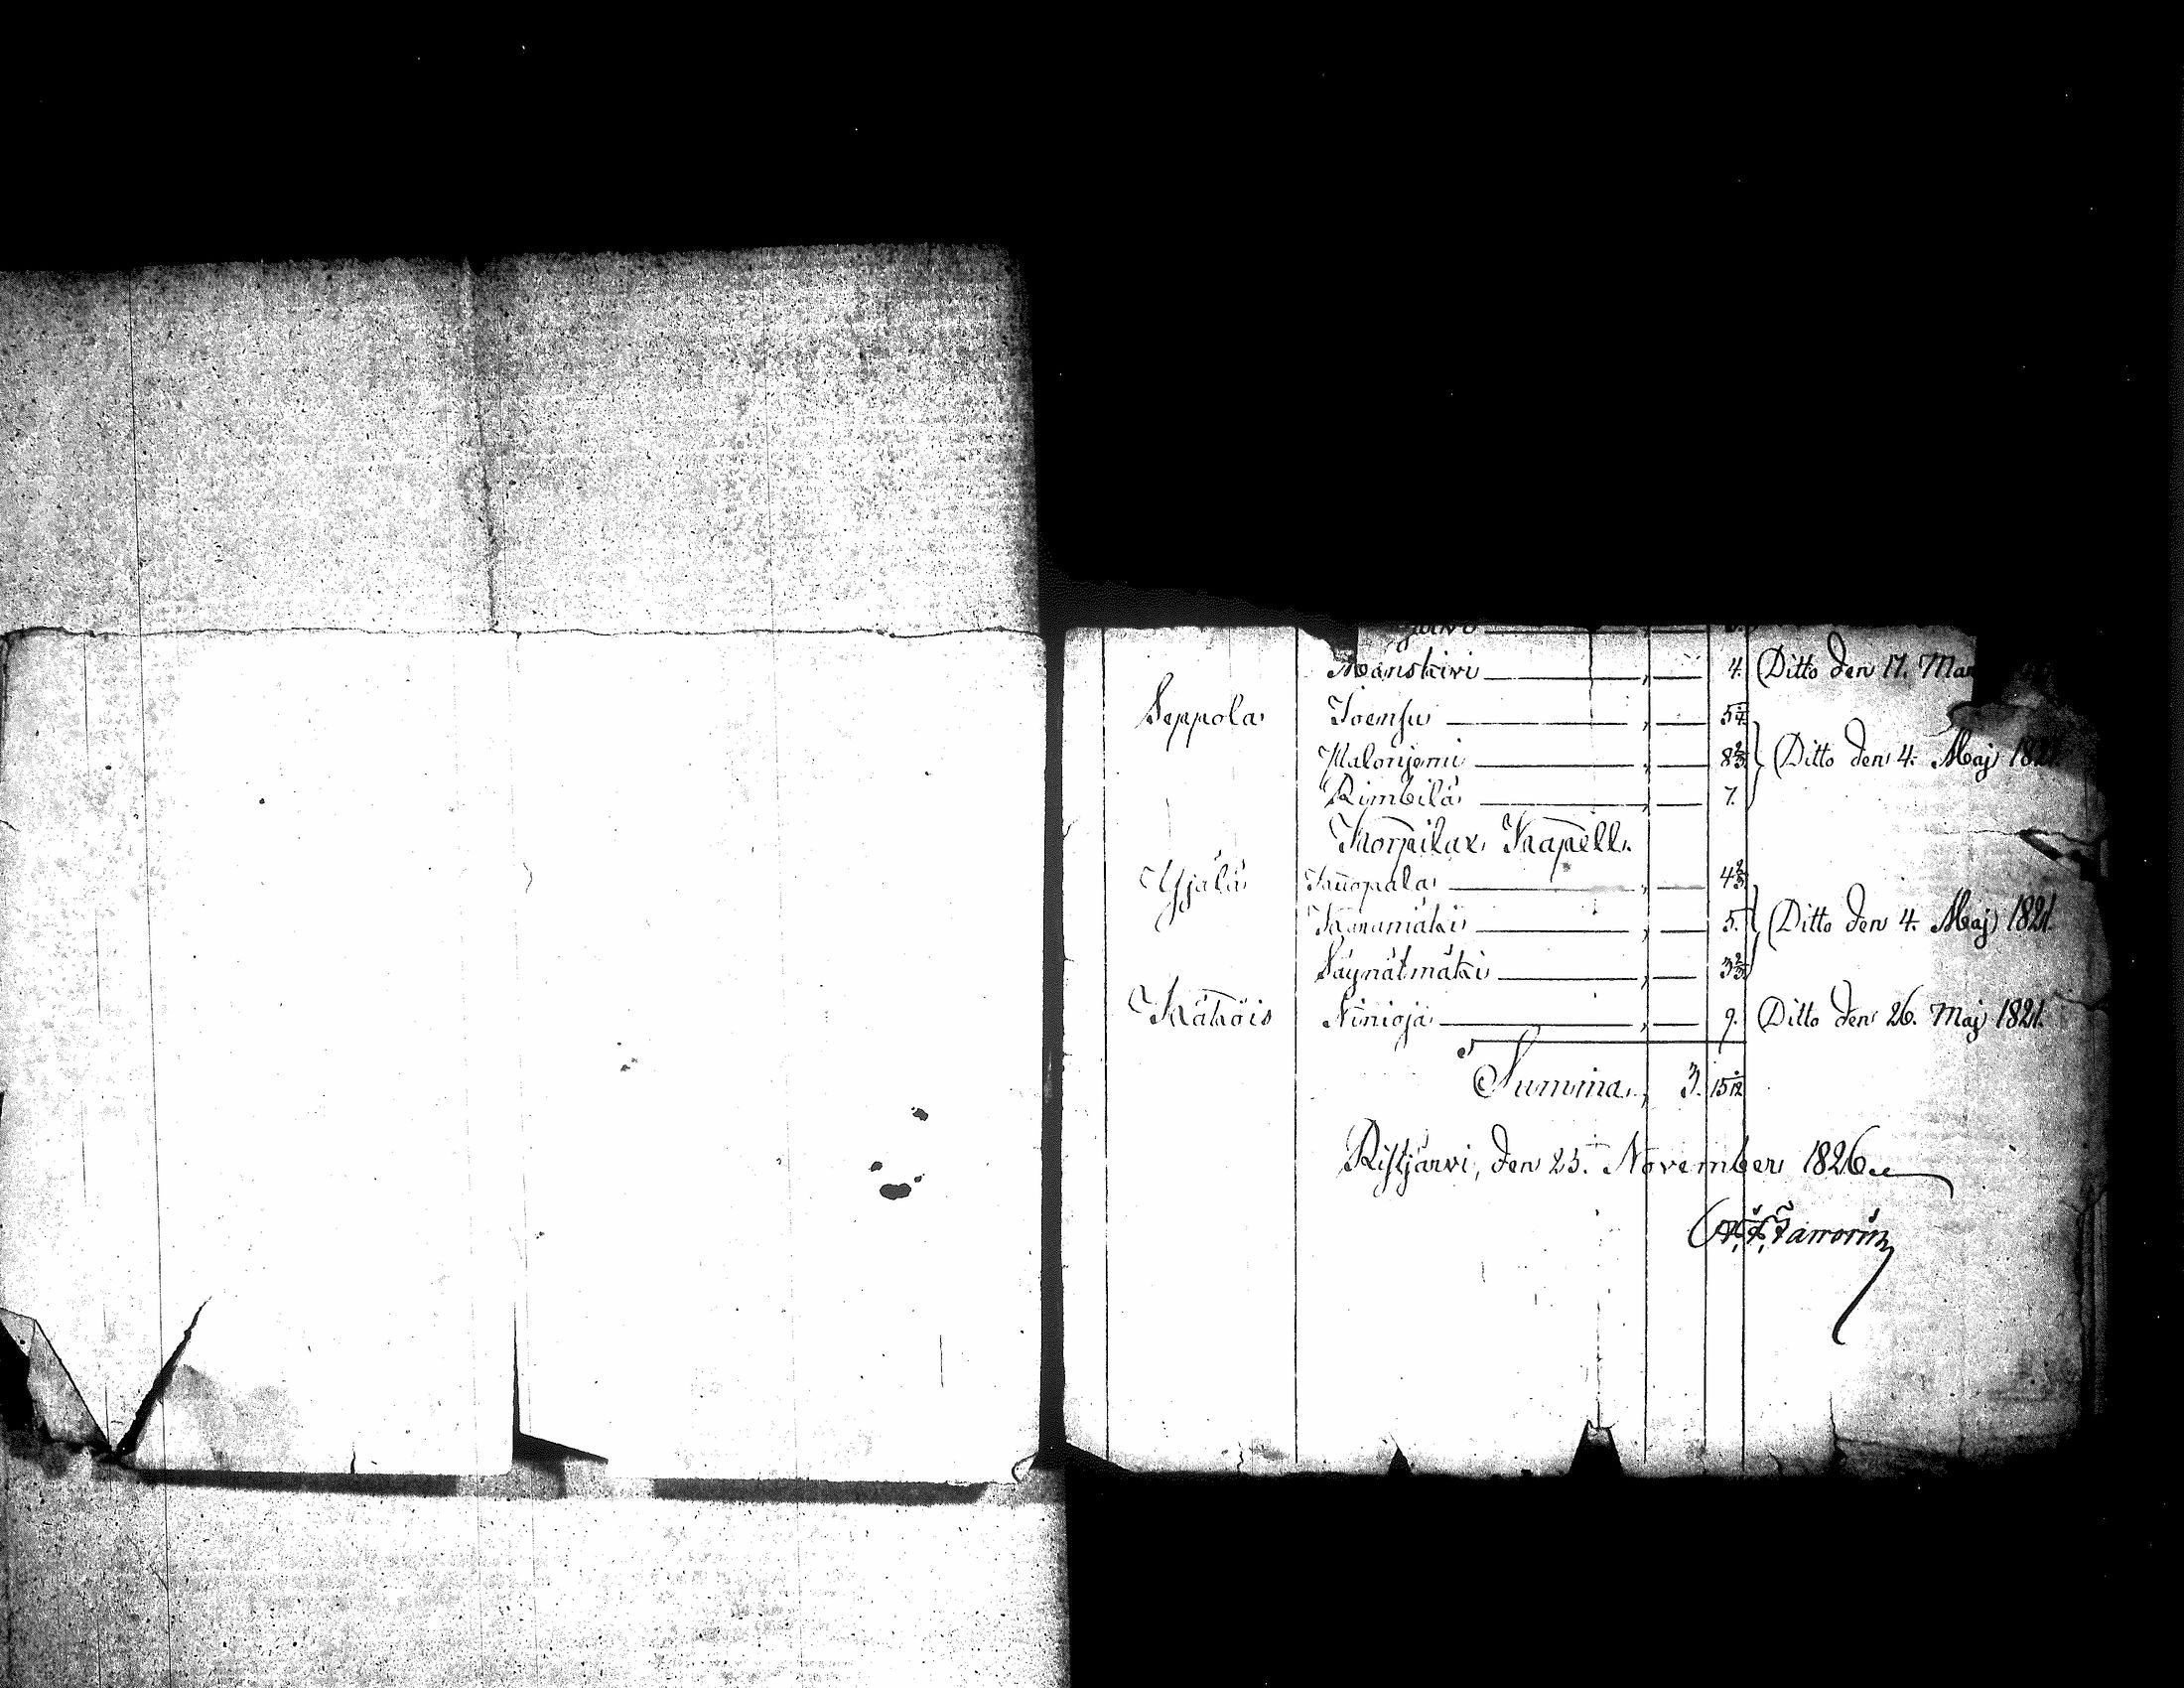 Mänskivi 4. Ditto den 17. Mar
Seppola Joensu 5¼
Malonjemi 8⅔ Ditto den 4. Maj 1821.
Rimbilä 7.
Korpilax Kapell.
Yjälä Kauopala 4⅔
Kanamäki 5. Ditto den 4. Maj 1821.
Säynätmäki 3⅔
Käköis Ninioja 9. Ditto den 26. Maj 1821.
Summa 3. 15
Ristjärvi, den 23. November 1826.